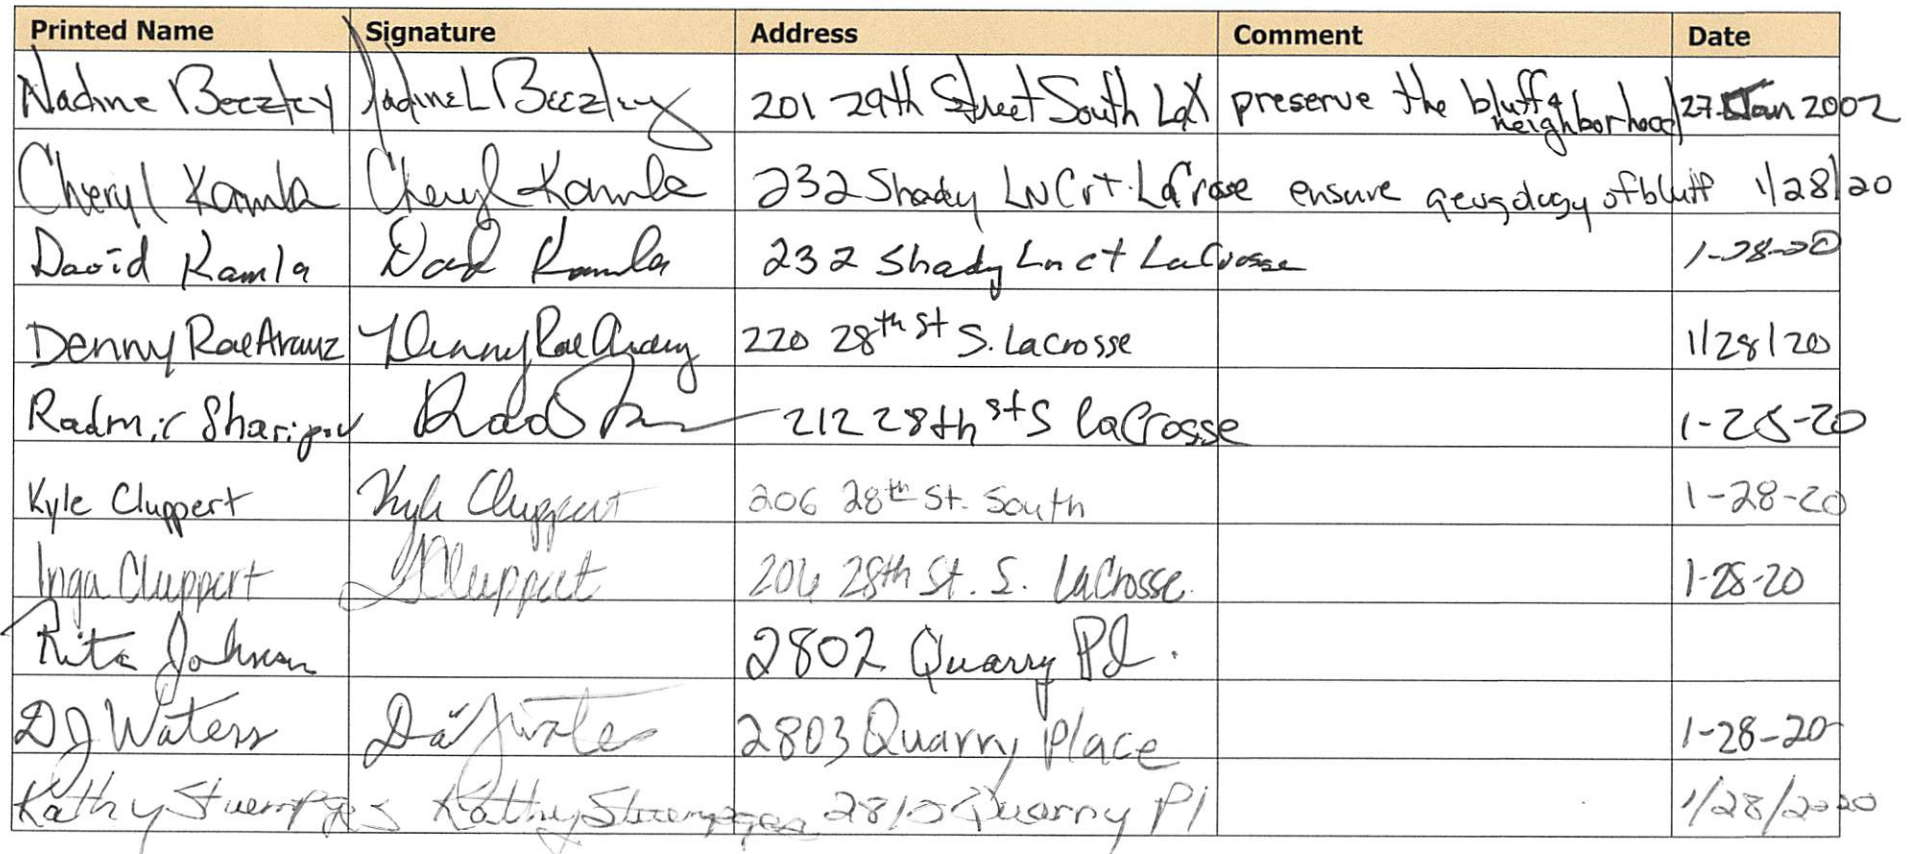 Printed Name Signature Address Comment Date
Nadine Beezley Nadine L Beezley 201 29th Street South LaX preserve the bluff & neighborhood 27 Jan 2002
Cheryl Kamla Cheryl Kamla 232 Shady Ln Crt. LaCrosse ensure of bluff 1/28/20
David Kamla David Kamla 232 Shady Ln ct LaCrosse 1-28-20
Denny Rae Arauz Denny Rae Arauz 220 28th st S. Lacrosse 1/28/20
Radmir Sharipov 212 28th st S LaCrosse 1-28-20
Kyle Cluppert Kyle Cluppert 206 28th St. South 1-28-20
Inga Cluppert I Cluppert 206 28th St. S. LaCrosse. 1-28-20
Rita Johnson 2802 Quarry Pl.
DJ Waters 2803 Quarry Place 1-28-20
Kathy Stuempges Kathy Stuempges Quarry Pl 1/28/2020